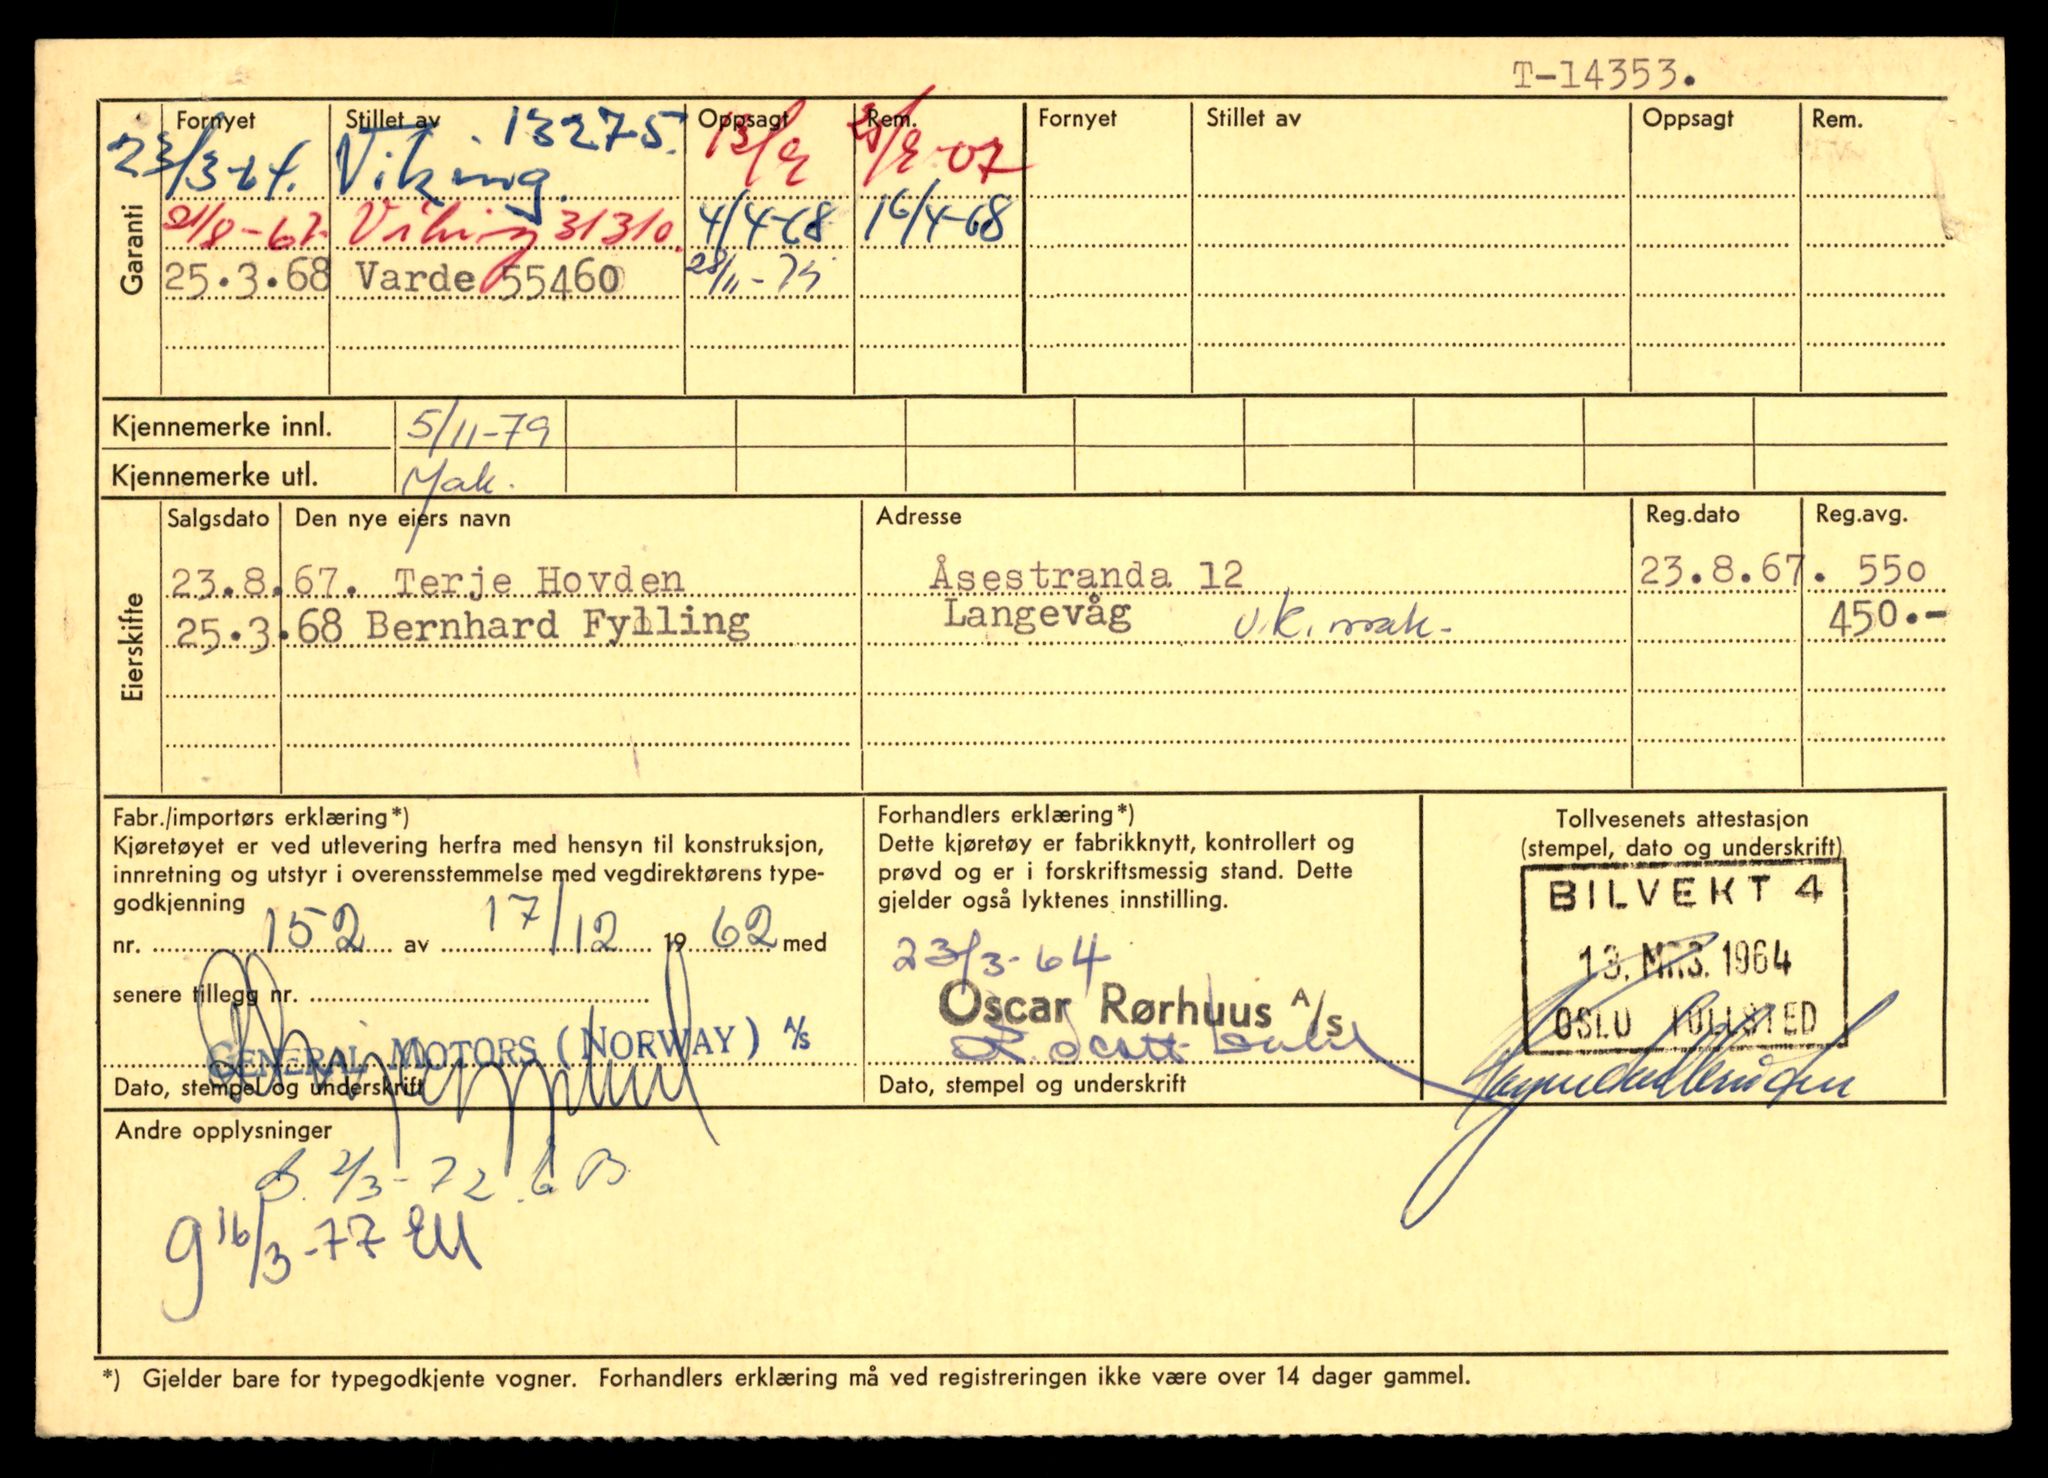 T-14353.
Garanti
Fornyet Stillet av Oppsagt Rem. Fornyet Stillet av Oppsagt Rem.
23/3-64. Viking. 13275. 13/9
21/8-67. Viking 31310. 4/4-68 16/4-68
25.3.68 Varde 55460 28/11-75
Kjennemerke innl. 5/11-79
Kjennemerke utl. Mak.
Eierskifte
Salgsdato Den nye eiers navn Adresse Reg.dato Reg.avg.
23.8.67. Terje Hovden Åsestranda 12 23.8.67. 550
25.3.68 Bernhard Fylling Langevåg v.k. mak. 450.-
Fabr./importørs erklæring*)
Kjøretøyet er ved utlevering herfra med hensyn til konstruksjon,
innretning og utstyr i overensstemmelse med vegdirektørens type-
godkjenning
nr. 152 av 17/12 1962 med
senere tillegg nr.
GENERAL MOTORS (NORWAY) A/S
Dato, stempel og underskrift
Forhandlers erklæring*)
Dette kjøretøy er fabrikknytt, kontrollert og
prøvd og er i forskriftsmessig stand. Dette
gjelder også lyktenes innstilling.
23/3-64
Oscar Rørhuus A/S
Dato, stempel og underskrift
Tollvesenets attestasjon
(stempel, dato og underskrift)
BILVEKT 4
13. MRS. 1964
OSLO TOLLSTED
Andre opplysninger
2/3-72
g 16/3-77 EM
*) Gjelder bare for typegodkjente vogner. Forhandlers erklæring må ved registreringen ikke være over 14 dager gammel.